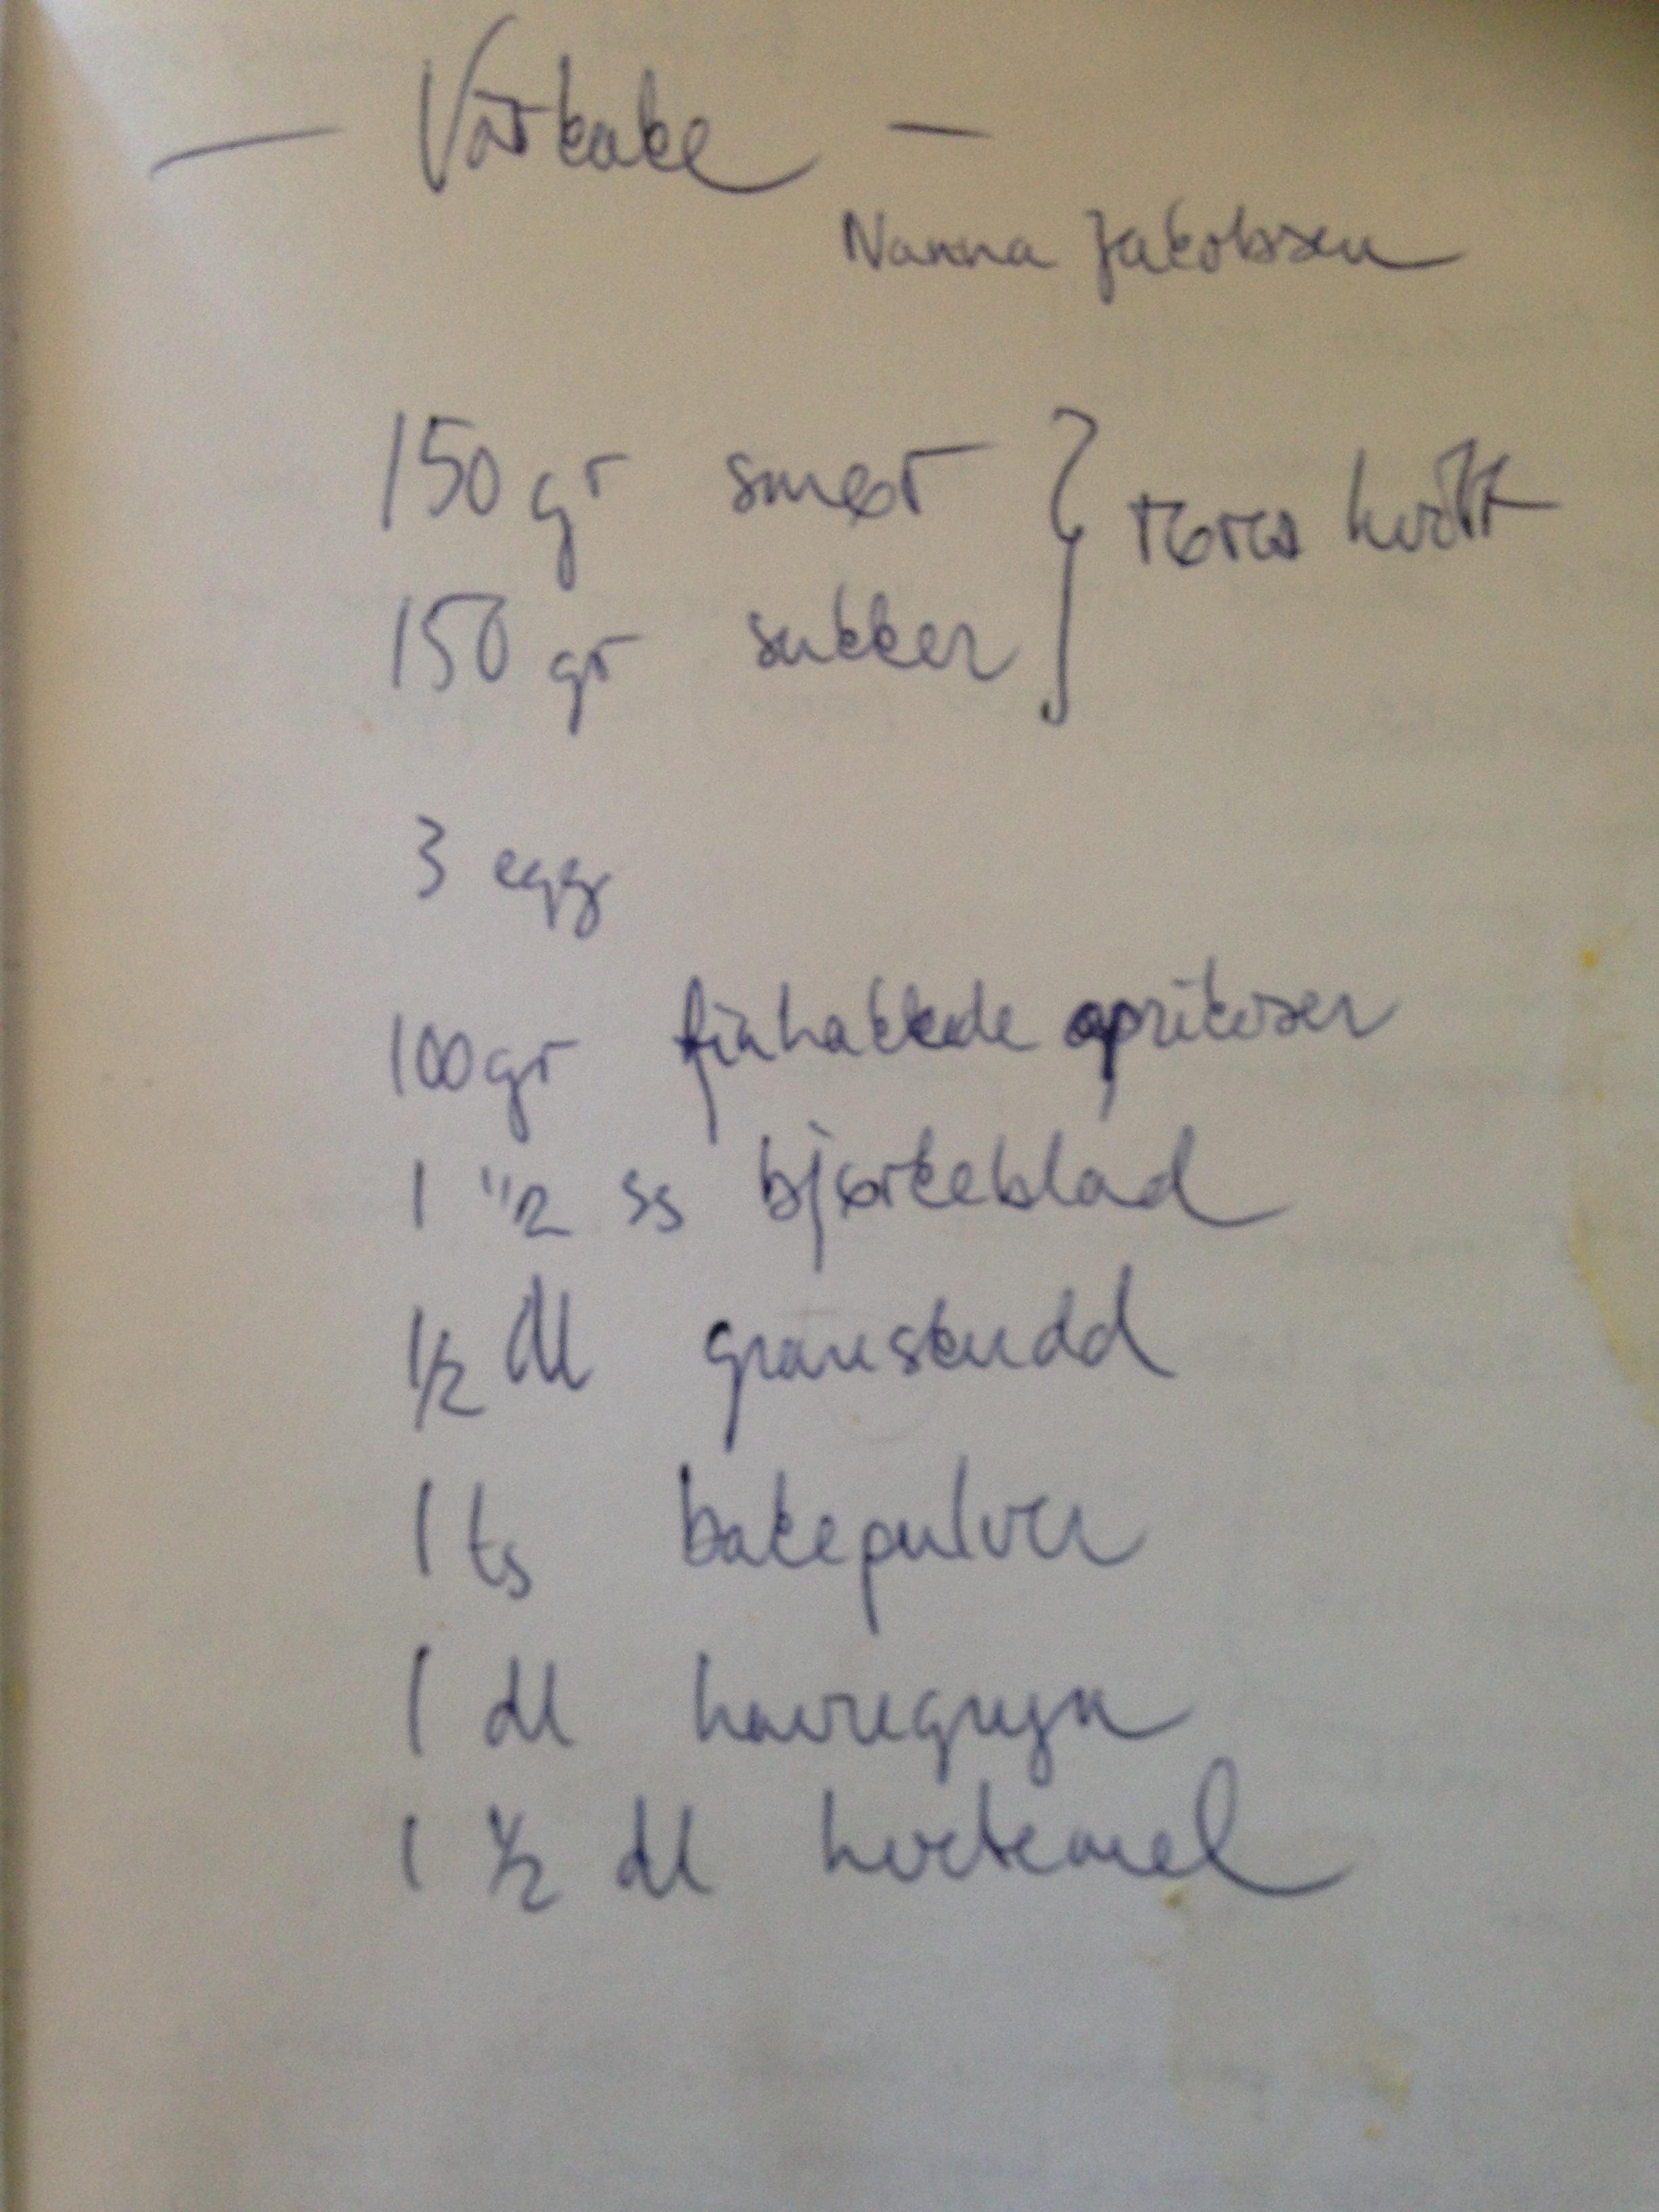 — Vårkake —
Nanna Jakobsen
150 gr smør } røres hvitt
150 gr sukker
3 egg
100 gr finhakkede aprikoser
1 1/2 ss bjørkeblad
1/2 dl granskudd
1 ts bakepulver
1 dl havregryn
1 1/2 dl hvetemel